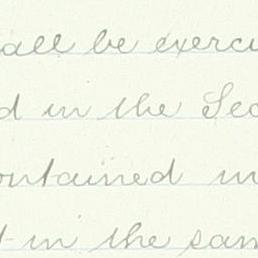 all be exerci
d in the Sec
ontained in
t in the sam